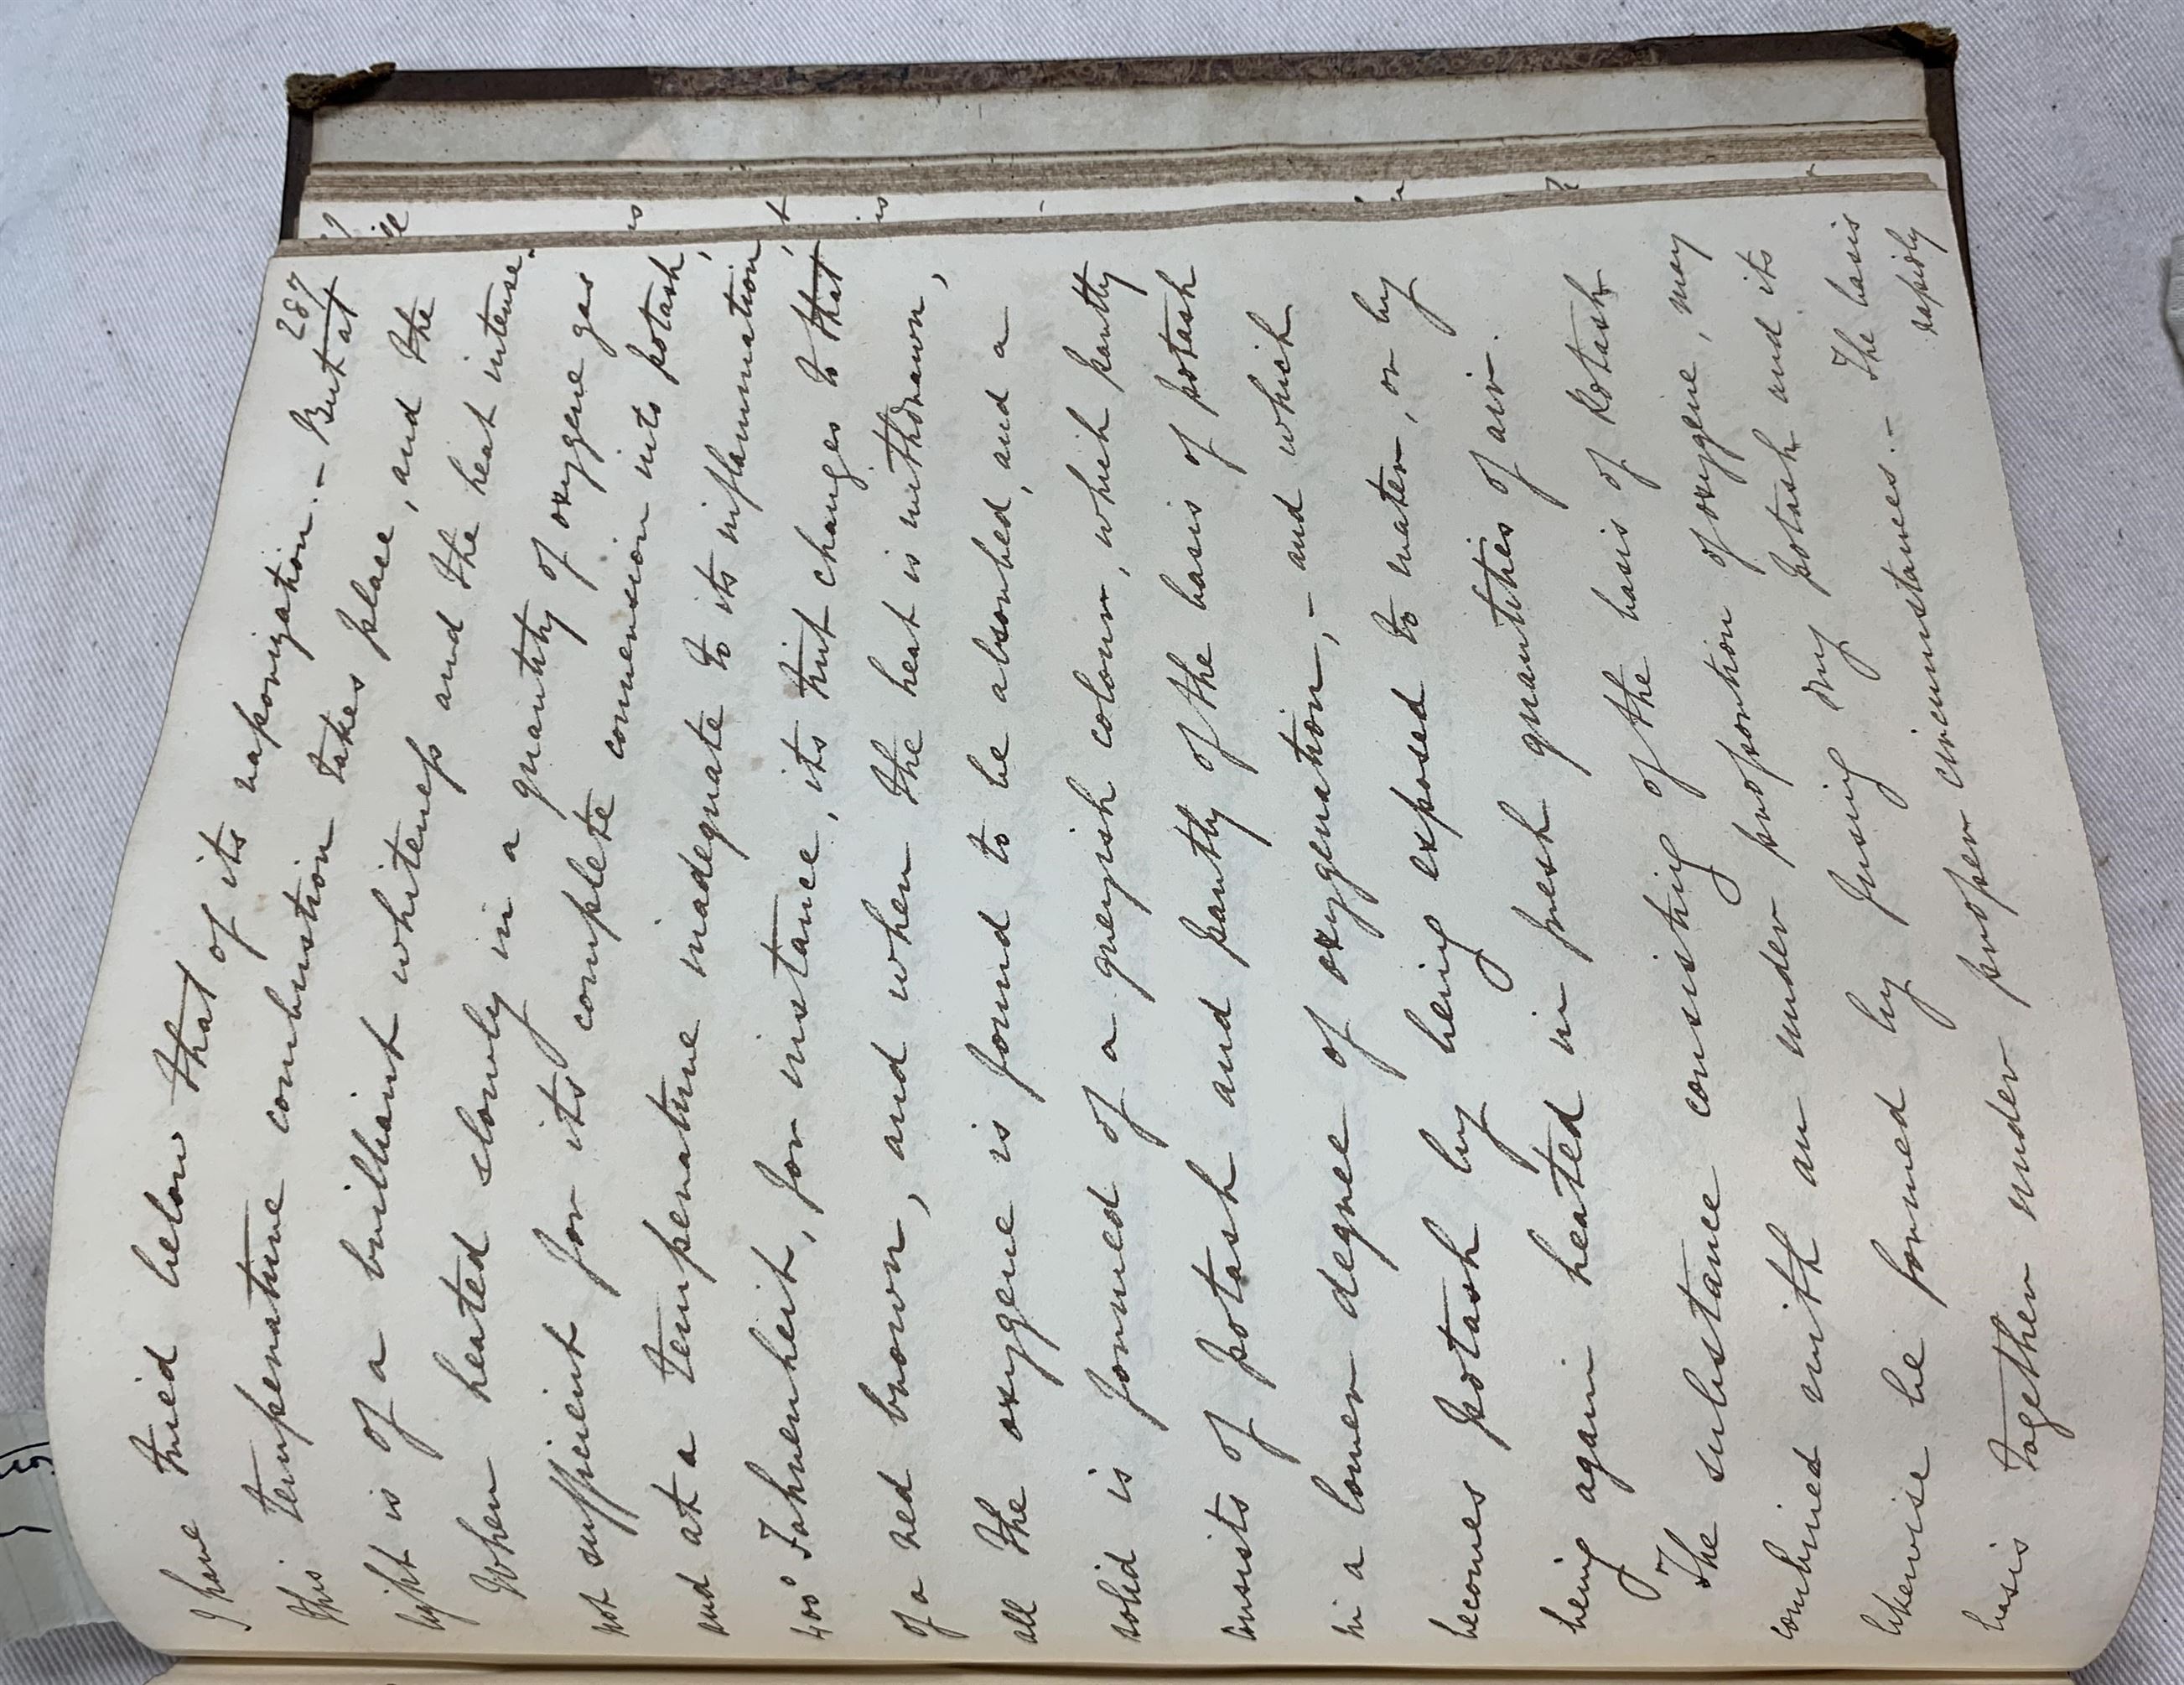 287
I have tried below that of its vaporization. – But at
this temperature combustion takes place, and the
light is of a brilliant whiteness and the heat intense.
When heated slowly in a quantity of oxygene gas
not sufficient for its complete conversion into potash,
and at a temperature inadequate to its inflammation,
400° Fahrenheit, for instance, its tint changes to that
of a red brown, and when the heat is withdrawn,
all the oxygene is found to be absorbed, and a
solid is formed of a greyish colour, which partly
consists of potash and partly of the basis of potash
in a lower degree of oxygenation, – and which
becomes potash by being exposed to water, or by
being again heated in fresh quantities of air.
The substance consisting of the basis of potash
combined with an under proportion of oxygene, may
likewise be formed by fusing dry potash and its
basis together under proper circumstances. – The basis
rapidly